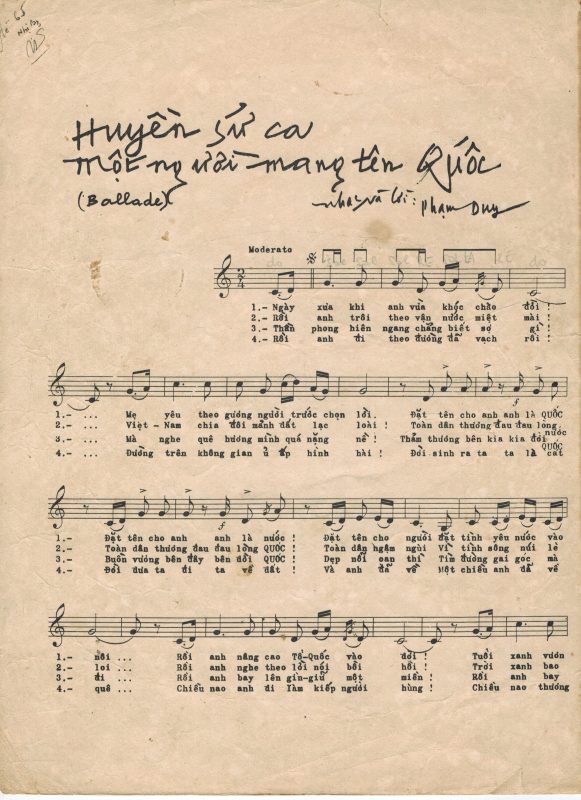 Huyền sử ca
một người mang tên Quốc
(Ballade)
nhạc và lời: Phạm Duy
Moderato
1.- Ngày xưa khi anh vừa khóc chào đời !
2.- Rồi anh trôi theo vận nước miệt mài !
3.- Thần phong hiên ngang chẳng biết sợ gì !
4.- Rồi anh đi theo đường đã vạch rồi !
1.- ... Mẹ yêu theo gương người trước chọn lời. Đặt tên cho anh anh là QUỐC
2.- ... Việt-Nam chia đôi mảnh đất lạc loài ! Toàn dân thương đau đau lòng nước
3.- ... Mà nghe quê hương mình quá nặng nề ! Thảm thương bên kia kia đồi
4.- ... Đường trên không gian ủ ấp hình hài ! Đời sinh ra ta ta là cát
1.- Đặt tên cho anh anh là nước ! Đặt tên cho người đặt tình yêu nước vào
2.- Toàn dân thương đau đau lòng QUỐC ! Toàn dân ngậm ngùi Vì tình sông núi lẻ
3.- Buồn vương bên đây bên đồi QUỐC ! Dẹp nỗi oan thì Tìm đường gai góc mà
4.- Đời đưa ta đi ta về đất ! Và anh đã về Một chiều anh đã về
1.- nôi ... Rồi anh nâng cao Tổ-Quốc vào đời ! Tuổi xanh vươn
2.- loi ... Rồi anh nghe theo lời nói bồi hồi ! Trời xanh bao
3.- đi ... Rồi anh bay lên gìn-giữ một miền ! Rồi anh bay
4.- quê ... Chiều nao anh đi làm kiếp người hùng ! Chiều nao thương